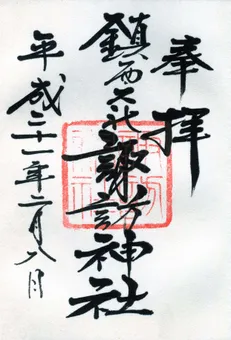 奉拝
鎮西大社諏訪神社
平成二十一年二月八日